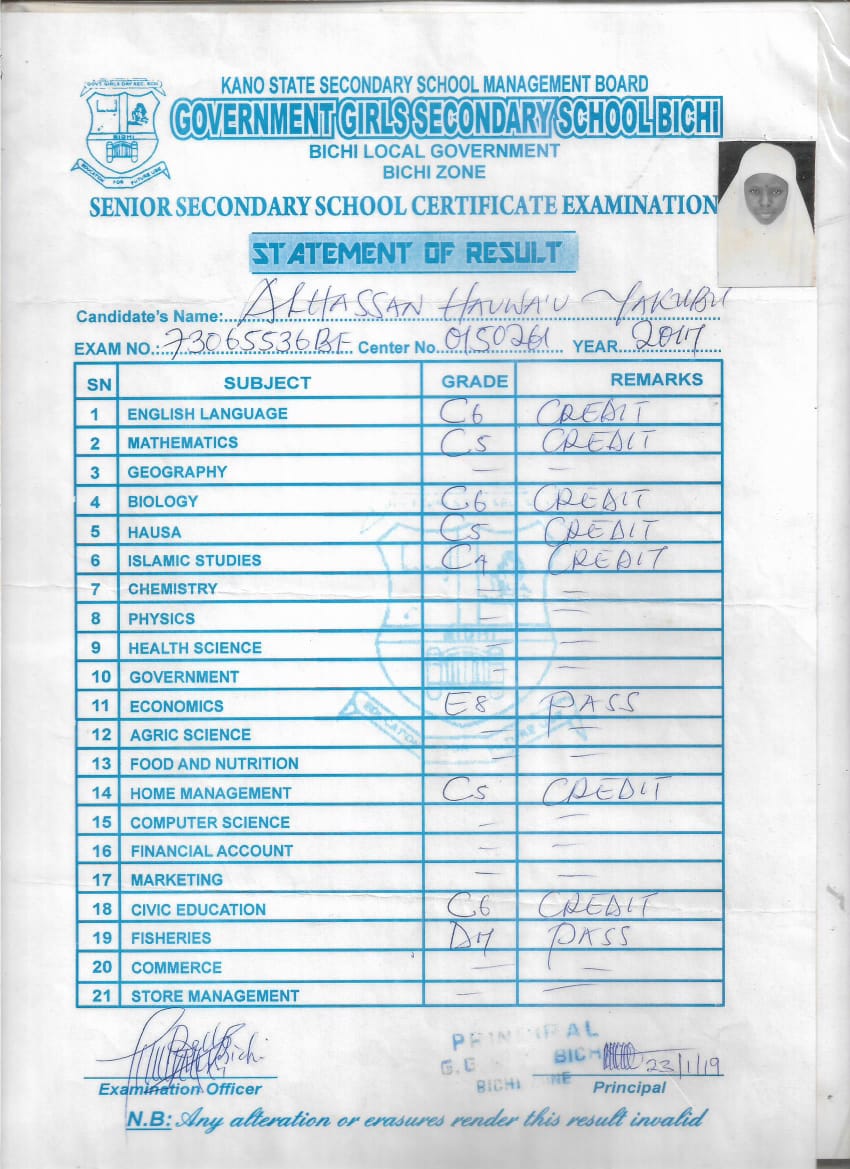 GOVT GIRLS DAY SEC. BICHI
BICHI
EDUCATION FOR FUTURE USE
KANO STATE SECONDARY SCHOOL MANAGEMENT BOARD
GOVERNMENT GIRLS SECONDARY SCHOOL BICHI
BICHI LOCAL GOVERNMENT
BICHI ZONE
SENIOR SECONDARY SCHOOL CERTIFICATE EXAMINATION
STATEMENT OF RESULT
Candidate's Name: ALHASSAN HAUWA'U YAKUBU
EXAM NO.: 73065536BF Center No. 0150261 YEAR 2017
SN SUBJECT GRADE REMARKS
1 ENGLISH LANGUAGE C6 CREDIT
2 MATHEMATICS C5 CREDIT
3 GEOGRAPHY — —
4 BIOLOGY C6 CREDIT
5 HAUSA C5 CREDIT
6 ISLAMIC STUDIES C4 CREDIT
7 CHEMISTRY — —
8 PHYSICS — —
9 HEALTH SCIENCE — —
10 GOVERNMENT — —
11 ECONOMICS E8 PASS
12 AGRIC SCIENCE — —
13 FOOD AND NUTRITION — —
14 HOME MANAGEMENT C5 CREDIT
15 COMPUTER SCIENCE — —
16 FINANCIAL ACCOUNT — —
17 MARKETING — —
18 CIVIC EDUCATION C6 CREDIT
19 FISHERIES D7 PASS
20 COMMERCE — —
21 STORE MANAGEMENT — —
BICHI
PRINCIPAL
G.G BICHI
BICHI ZONE
23/1/19
Examination Officer Principal
N.B: Any alteration or erasures render this result invalid